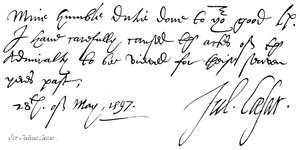 Mine humble dutie done to yor good Lp.
I have carefully caused the actes of the
Admiralty to be viewed for theise seaven
yeres past,
28th. of May, 1597.
Jul. Cæsar.
Sir Julius Cæsar.